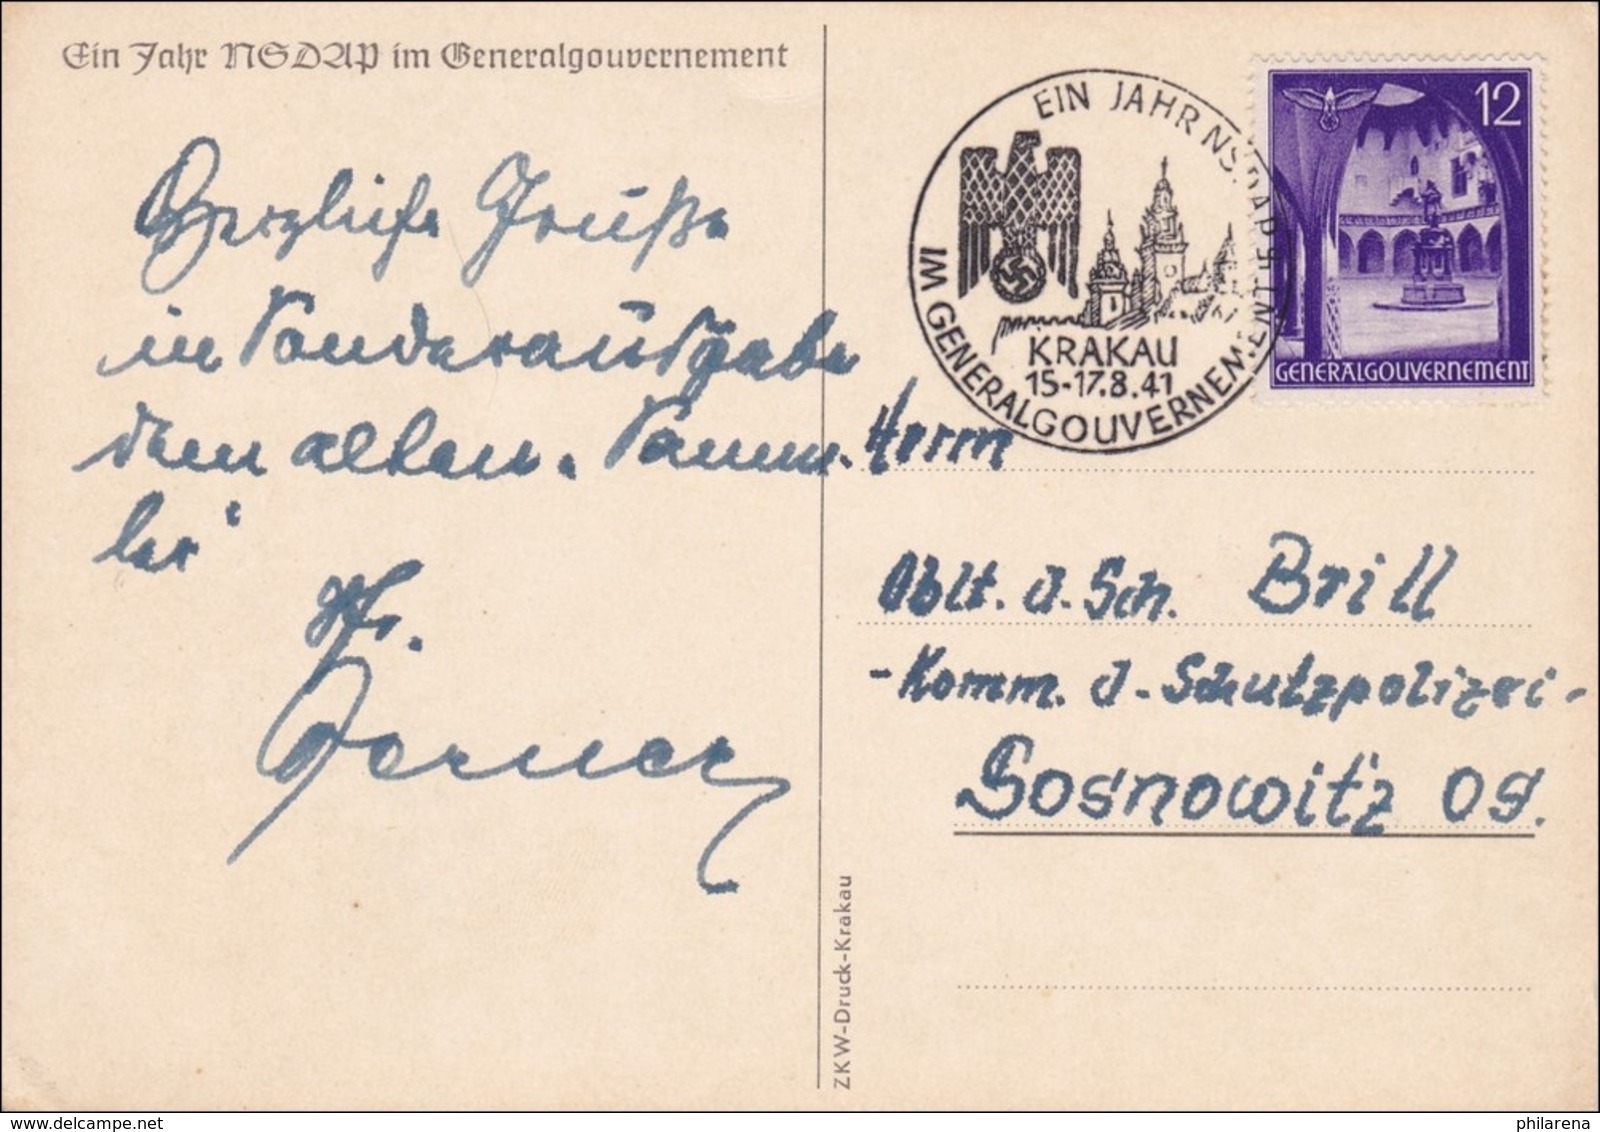 Ein Jahr NSDAP im Generalgouvernement
Herzliche Grüße
in Sonderausgabe
dem alten
Ihr
EIN JAHR NSDAP
IM GENERALGOUVERNEMENT
KRAKAU
15-17.8.41
12
GENERALGOUVERNEMENT
Herrn
Oblt. d. Sch. Brill
-Komm. d. Schutzpolizei-
Sosnowitz OS.
ZKW-Druck-Krakau
www.delcampe.net
philarena